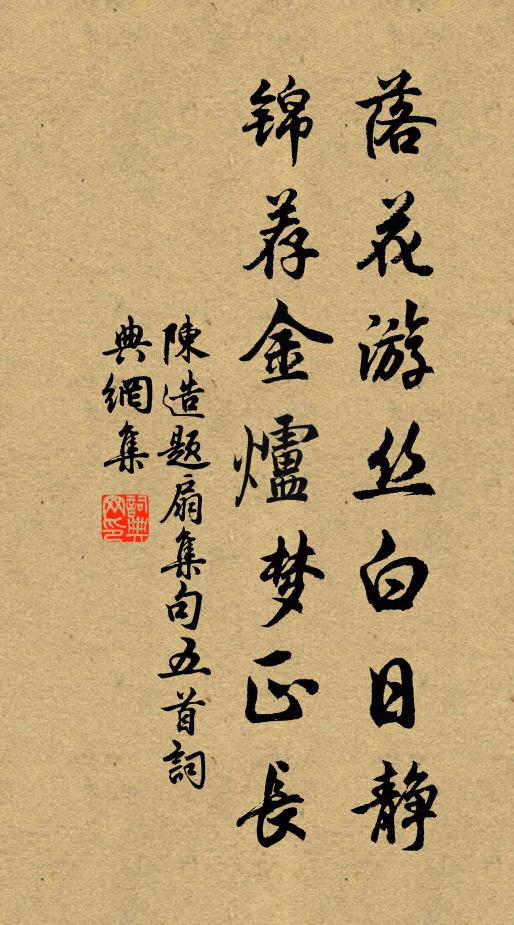 落花游丝白日静
锦荐金爐梦正長
陳造題扇集句五首詞
典網集
詞典
网印